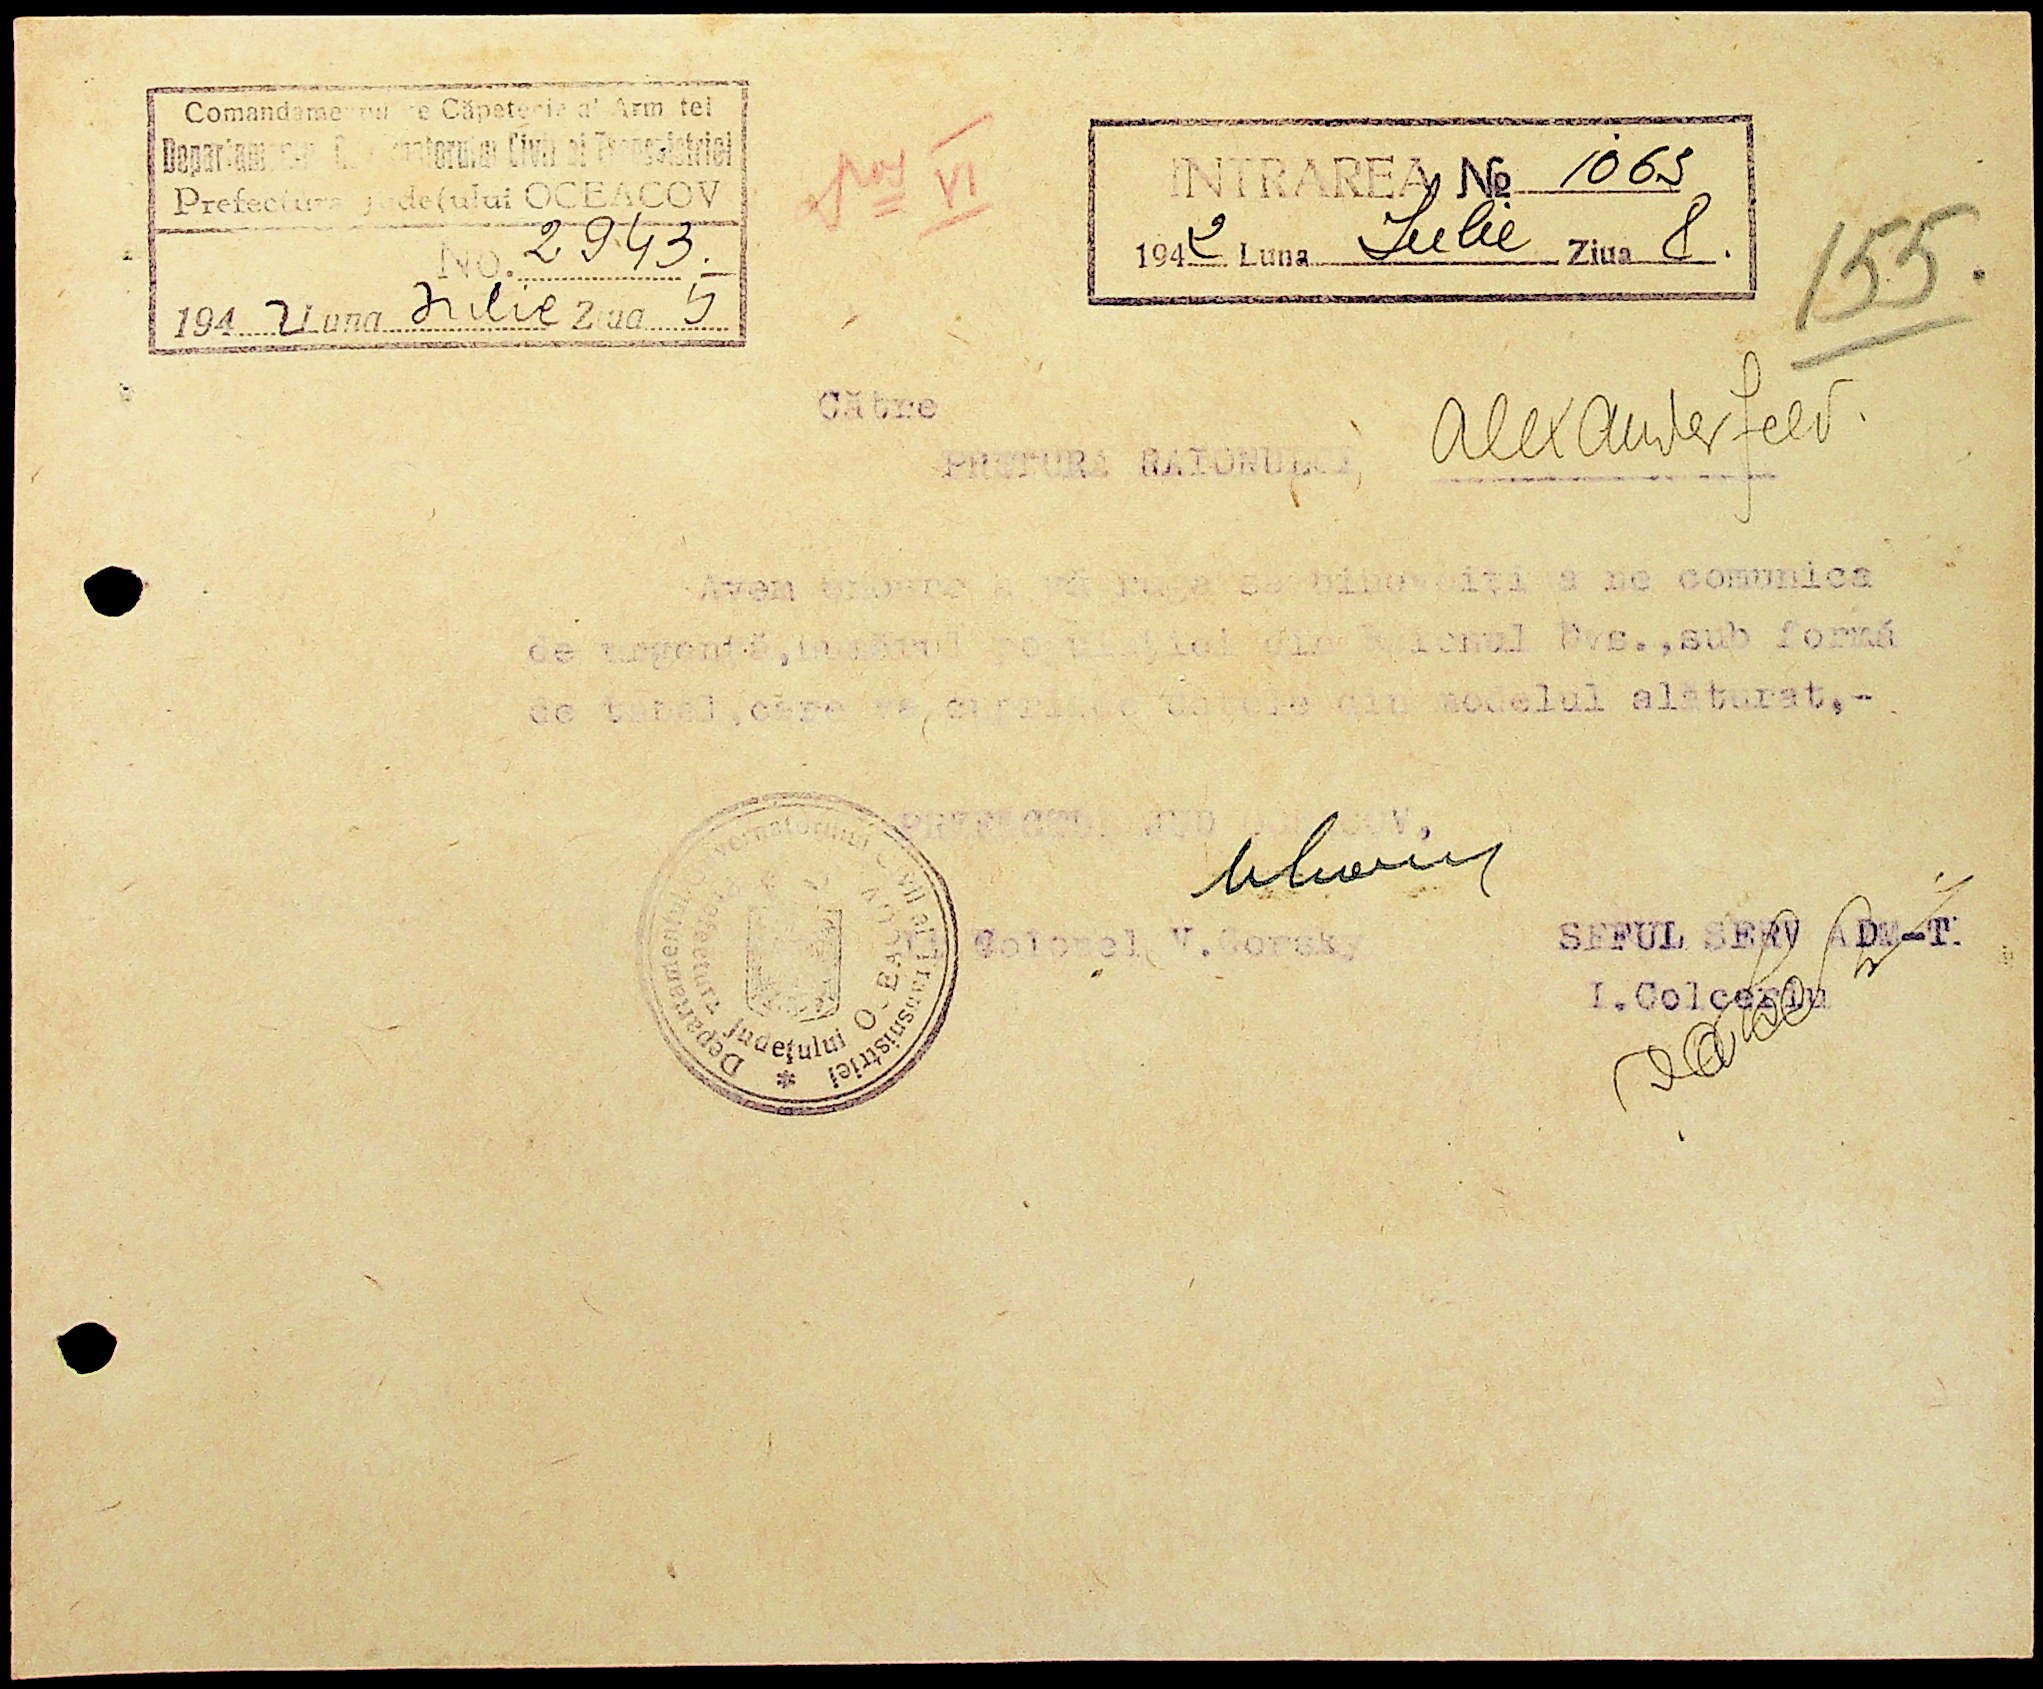 Comandamentul de Căpetenie al Armatei
Departamentul Guvernatorului Civil al Transnistriei
Prefectura județului OCEACOV
No. 2943.
194 2 Luna Iulie Ziua 5
VI
INTRAREA No 1063
1942 Luna Iulie Ziua 8.
155.
Către
PRETURA RAIONULUI, Alexanderfeld.
Avem onoare a vă ruga să binevoiți a ne comunica
de urgență, numărul populației din Raionul Dvs., sub formă
de tabel, care va cuprinde datele din modelul alăturat.-
PREFECTUL JUD OCEACOV,
Lt Colonel V.Gorsky
SEFUL SERV ADM-T.
I.Colceriu
Departamentul Guvernatorului Civil al Transnistriei
Prefectura Județului OCEACOV